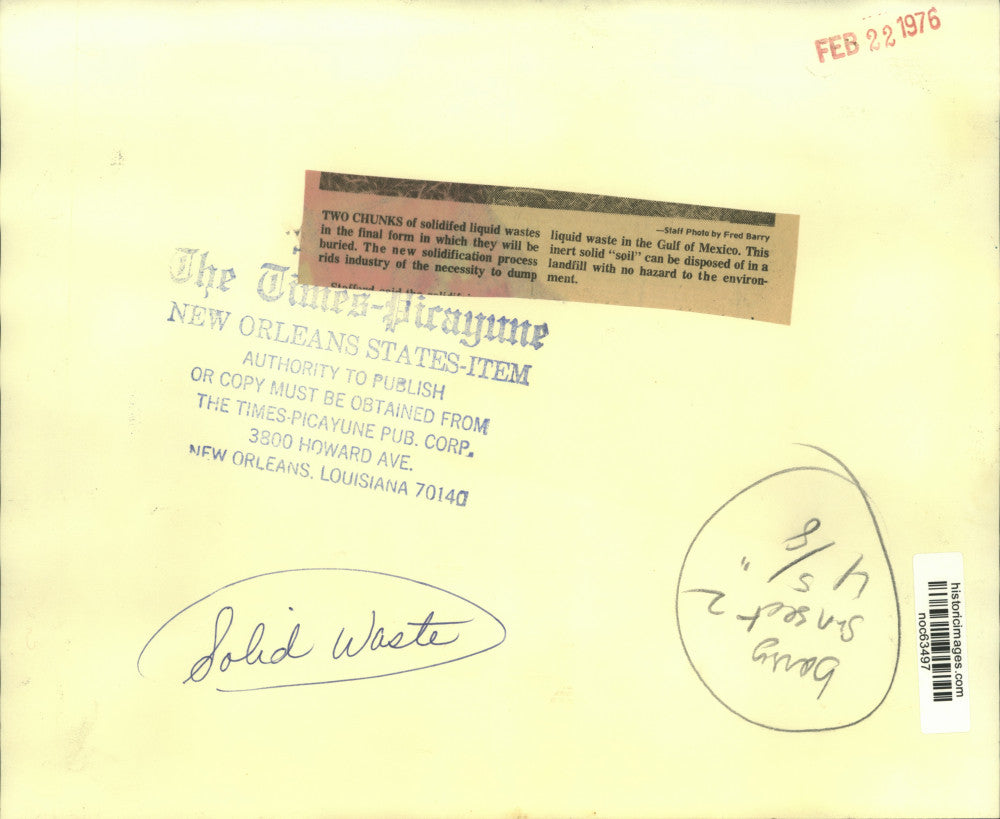 FEB 22 1976
—Staff Photo by Fred Barry
TWO CHUNKS of solidifed liquid wastes
in the final form in which they will be
buried. The new solidification process
rids industry of the necessity to dump
liquid waste in the Gulf of Mexico. This
inert solid "soil" can be disposed of in a
landfill with no hazard to the environ-
ment.
The Times-Picayune
NEW ORLEANS STATES-ITEM
AUTHORITY TO PUBLISH
OR COPY MUST BE OBTAINED FROM
THE TIMES-PICAYUNE PUB. CORP.
3800 HOWARD AVE.
NEW ORLEANS, LOUISIANA 70140
Solid Waste
barry
sect 2
4 5/8 "
historicimages.com
noc63497